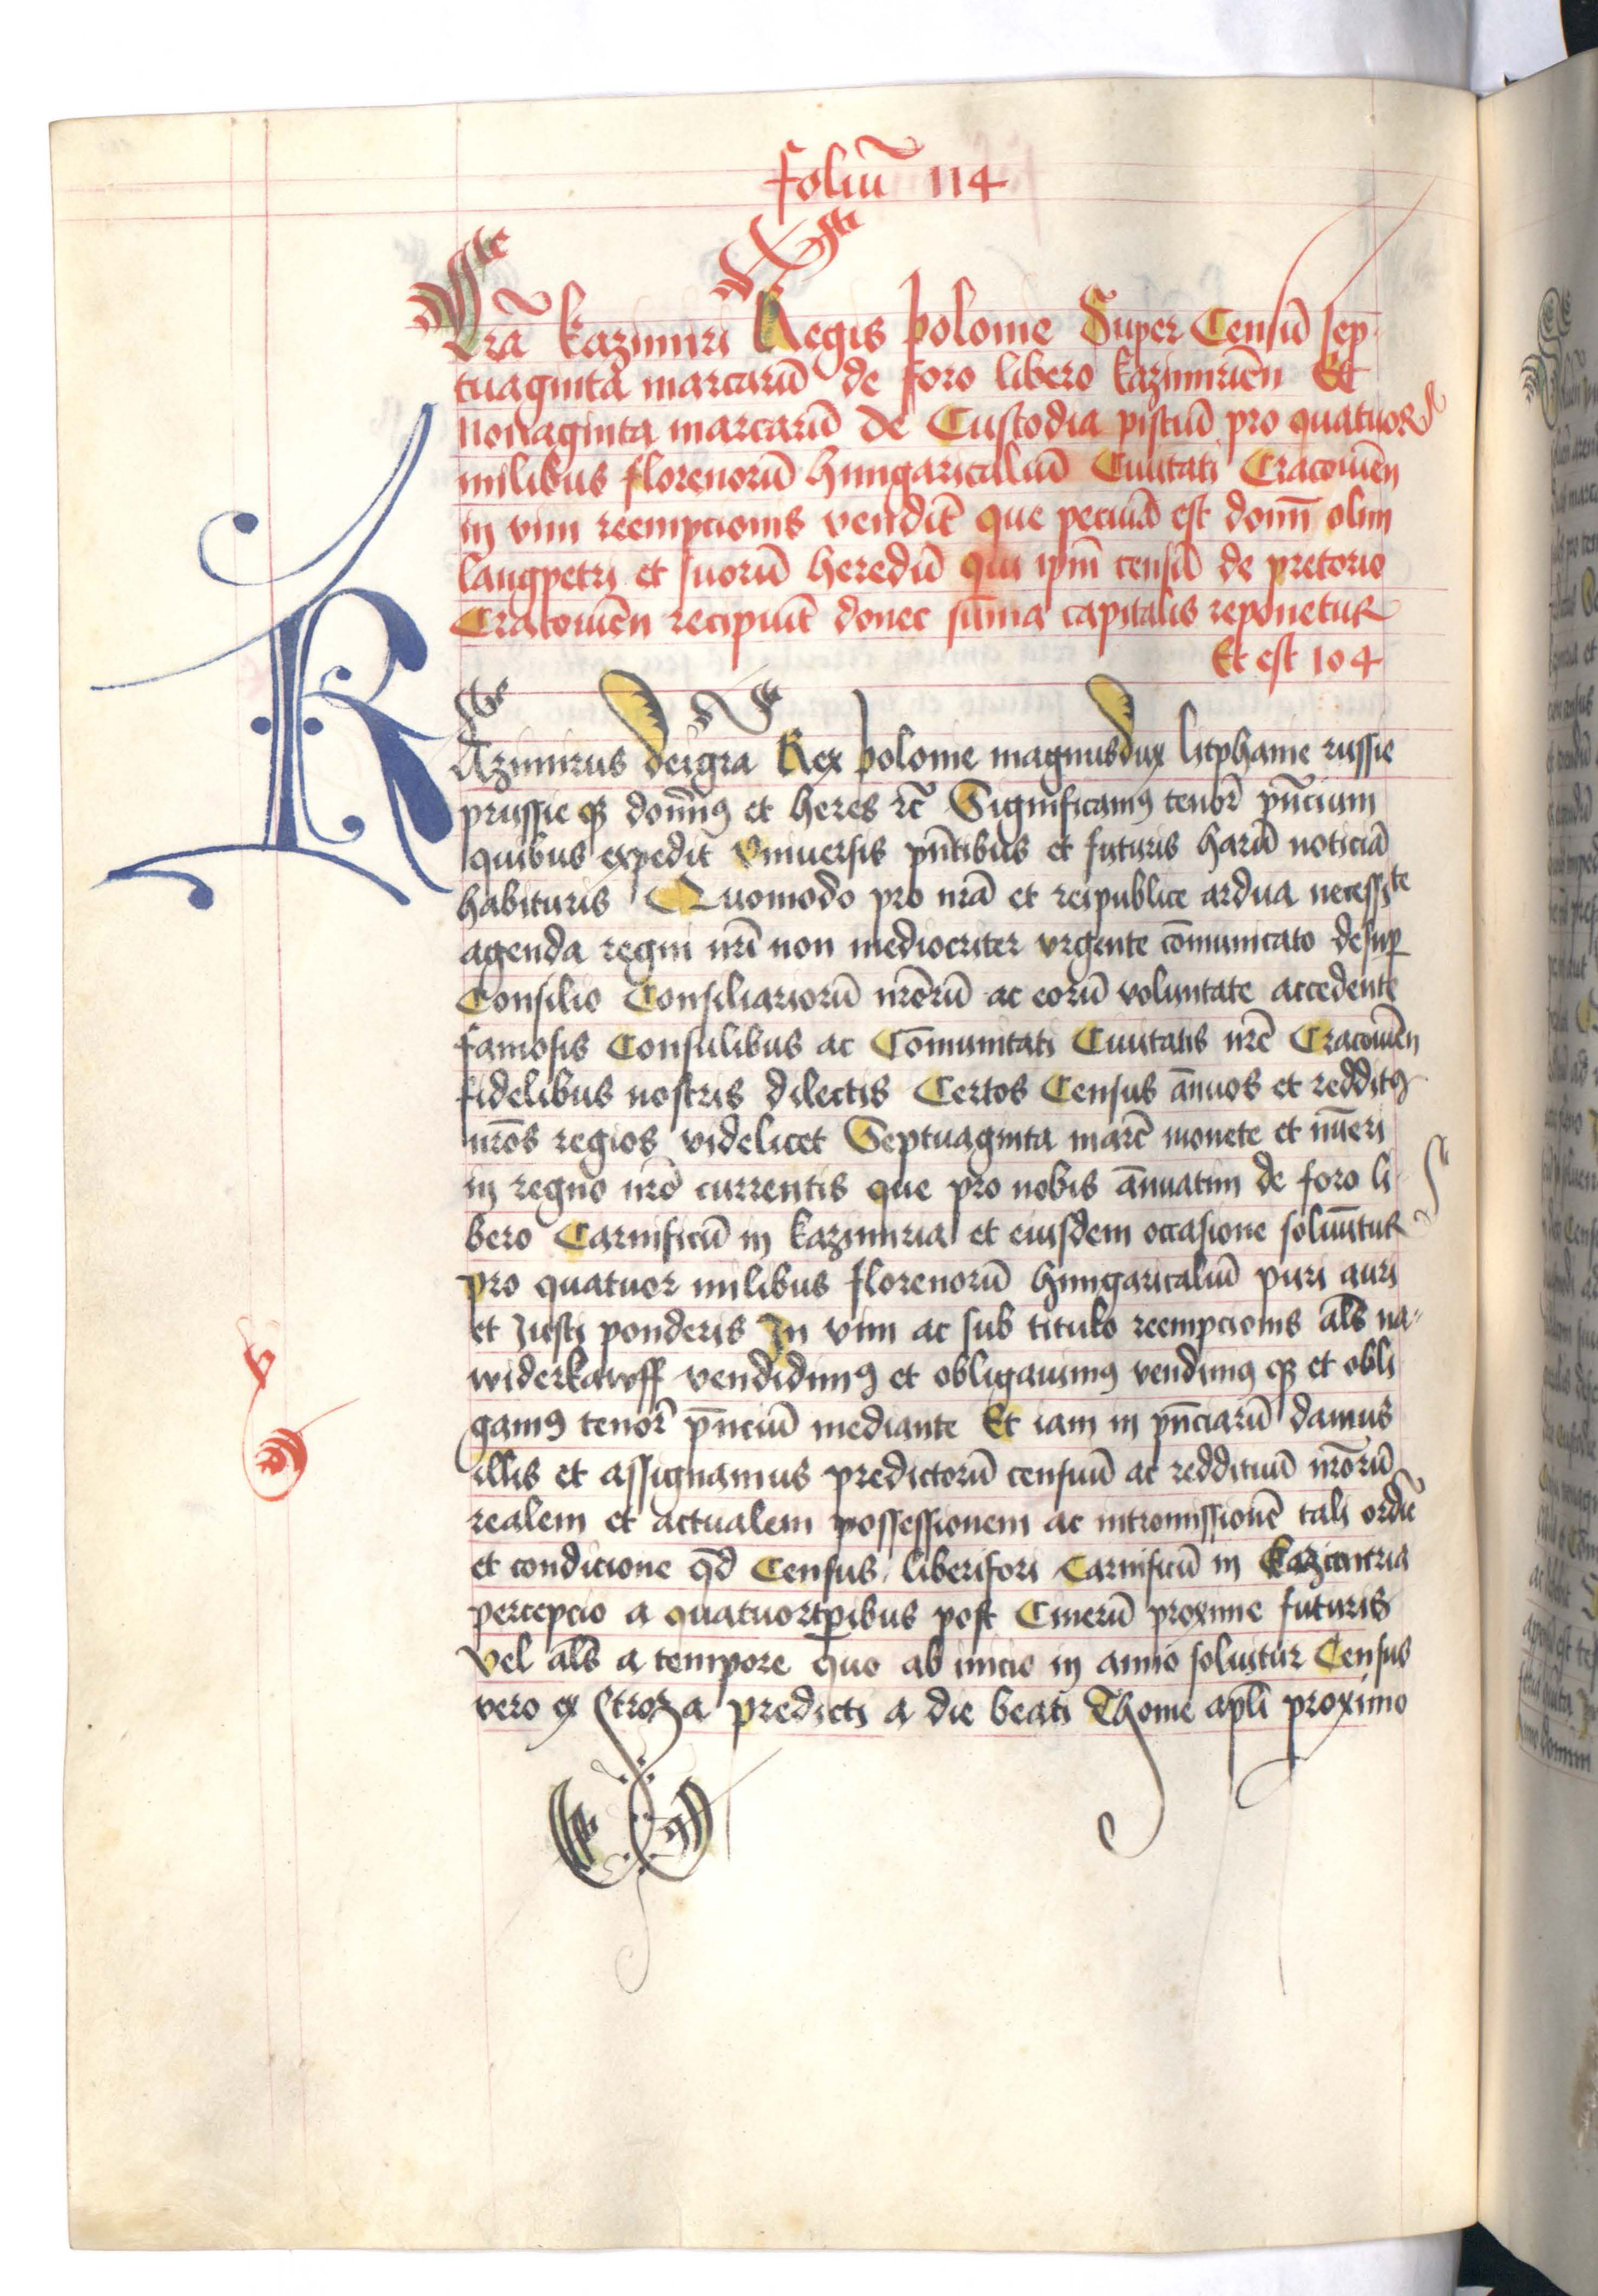 foliū 114
Lrā kazimiri Regis polonie Super Censū sep
tuaginta marcarū de foro libero kazimirien̄ Et
Nonaginta marcarū de Custodia pistuū pro quatuor
milibus florenorū hungaricaliū Ciuitati Cracouien̄
in vim reempcionis vendit̄ que pecunia est domī olim
langpetri et suorū heredū qui ip̄m censū de pretorio
Cracouien̄ recipiūt donec sūma capitalis reponetur
Et est 104
KAzimirus dei gr̄a Rex polonie magnus dux litphanie russie
prussie qꝫ domīꝰ et heres rc̄ Significamꝰ tenor̄ pn̄cium
quibus expedit vniuersis pn̄tibus et futuris harū noticiā
habituris Quomodo pro nr̄a et reipublice ardua necessite
agenda regni nr̄i non mediocriter vrgente cōmunicato desup̄
Consilio Consiliariorū nr̄orū ac eorū voluntate accedente
famosis Consulibus ac Cōmunitati Ciuitatis nr̄e Cracouien̄
fidelibus nostris dilectis Certos Census ānuos et redditꝰ
nr̄os regios videlicet Septuaginta marc̄ monete et nūeri
in regno nr̄o currentis que pro nobis ānuatim de foro li
bero Carnificū in kazimiria et eiusdem occasione soluūtur
pro quatuor milibus florenorū hungaricaliū puri auri
et Justi ponderis In vim ac sub titulo reempcionis al̄s na
widerkawff vendidimꝰ et obligauimꝰ vendimꝰ qꝫ et obli
gamꝰ tenor̄ pn̄ciū mediante Et iam in pn̄ciarū damus
illis et assignamus predictorū censuū ac reddituū nr̄orū
realem et actualem possessionem ac intromissionē tali ordīe
et condicione qd̄ Census liberi fori Carnificū in kazimiria
percepcio a quatuortp̄ibus post Cinerū proxime futuris
vel al̄s a tempore quo ab inicio in anno soluitur Census
vero ex Stroza predicti a die beati Thome apl̄i proximo